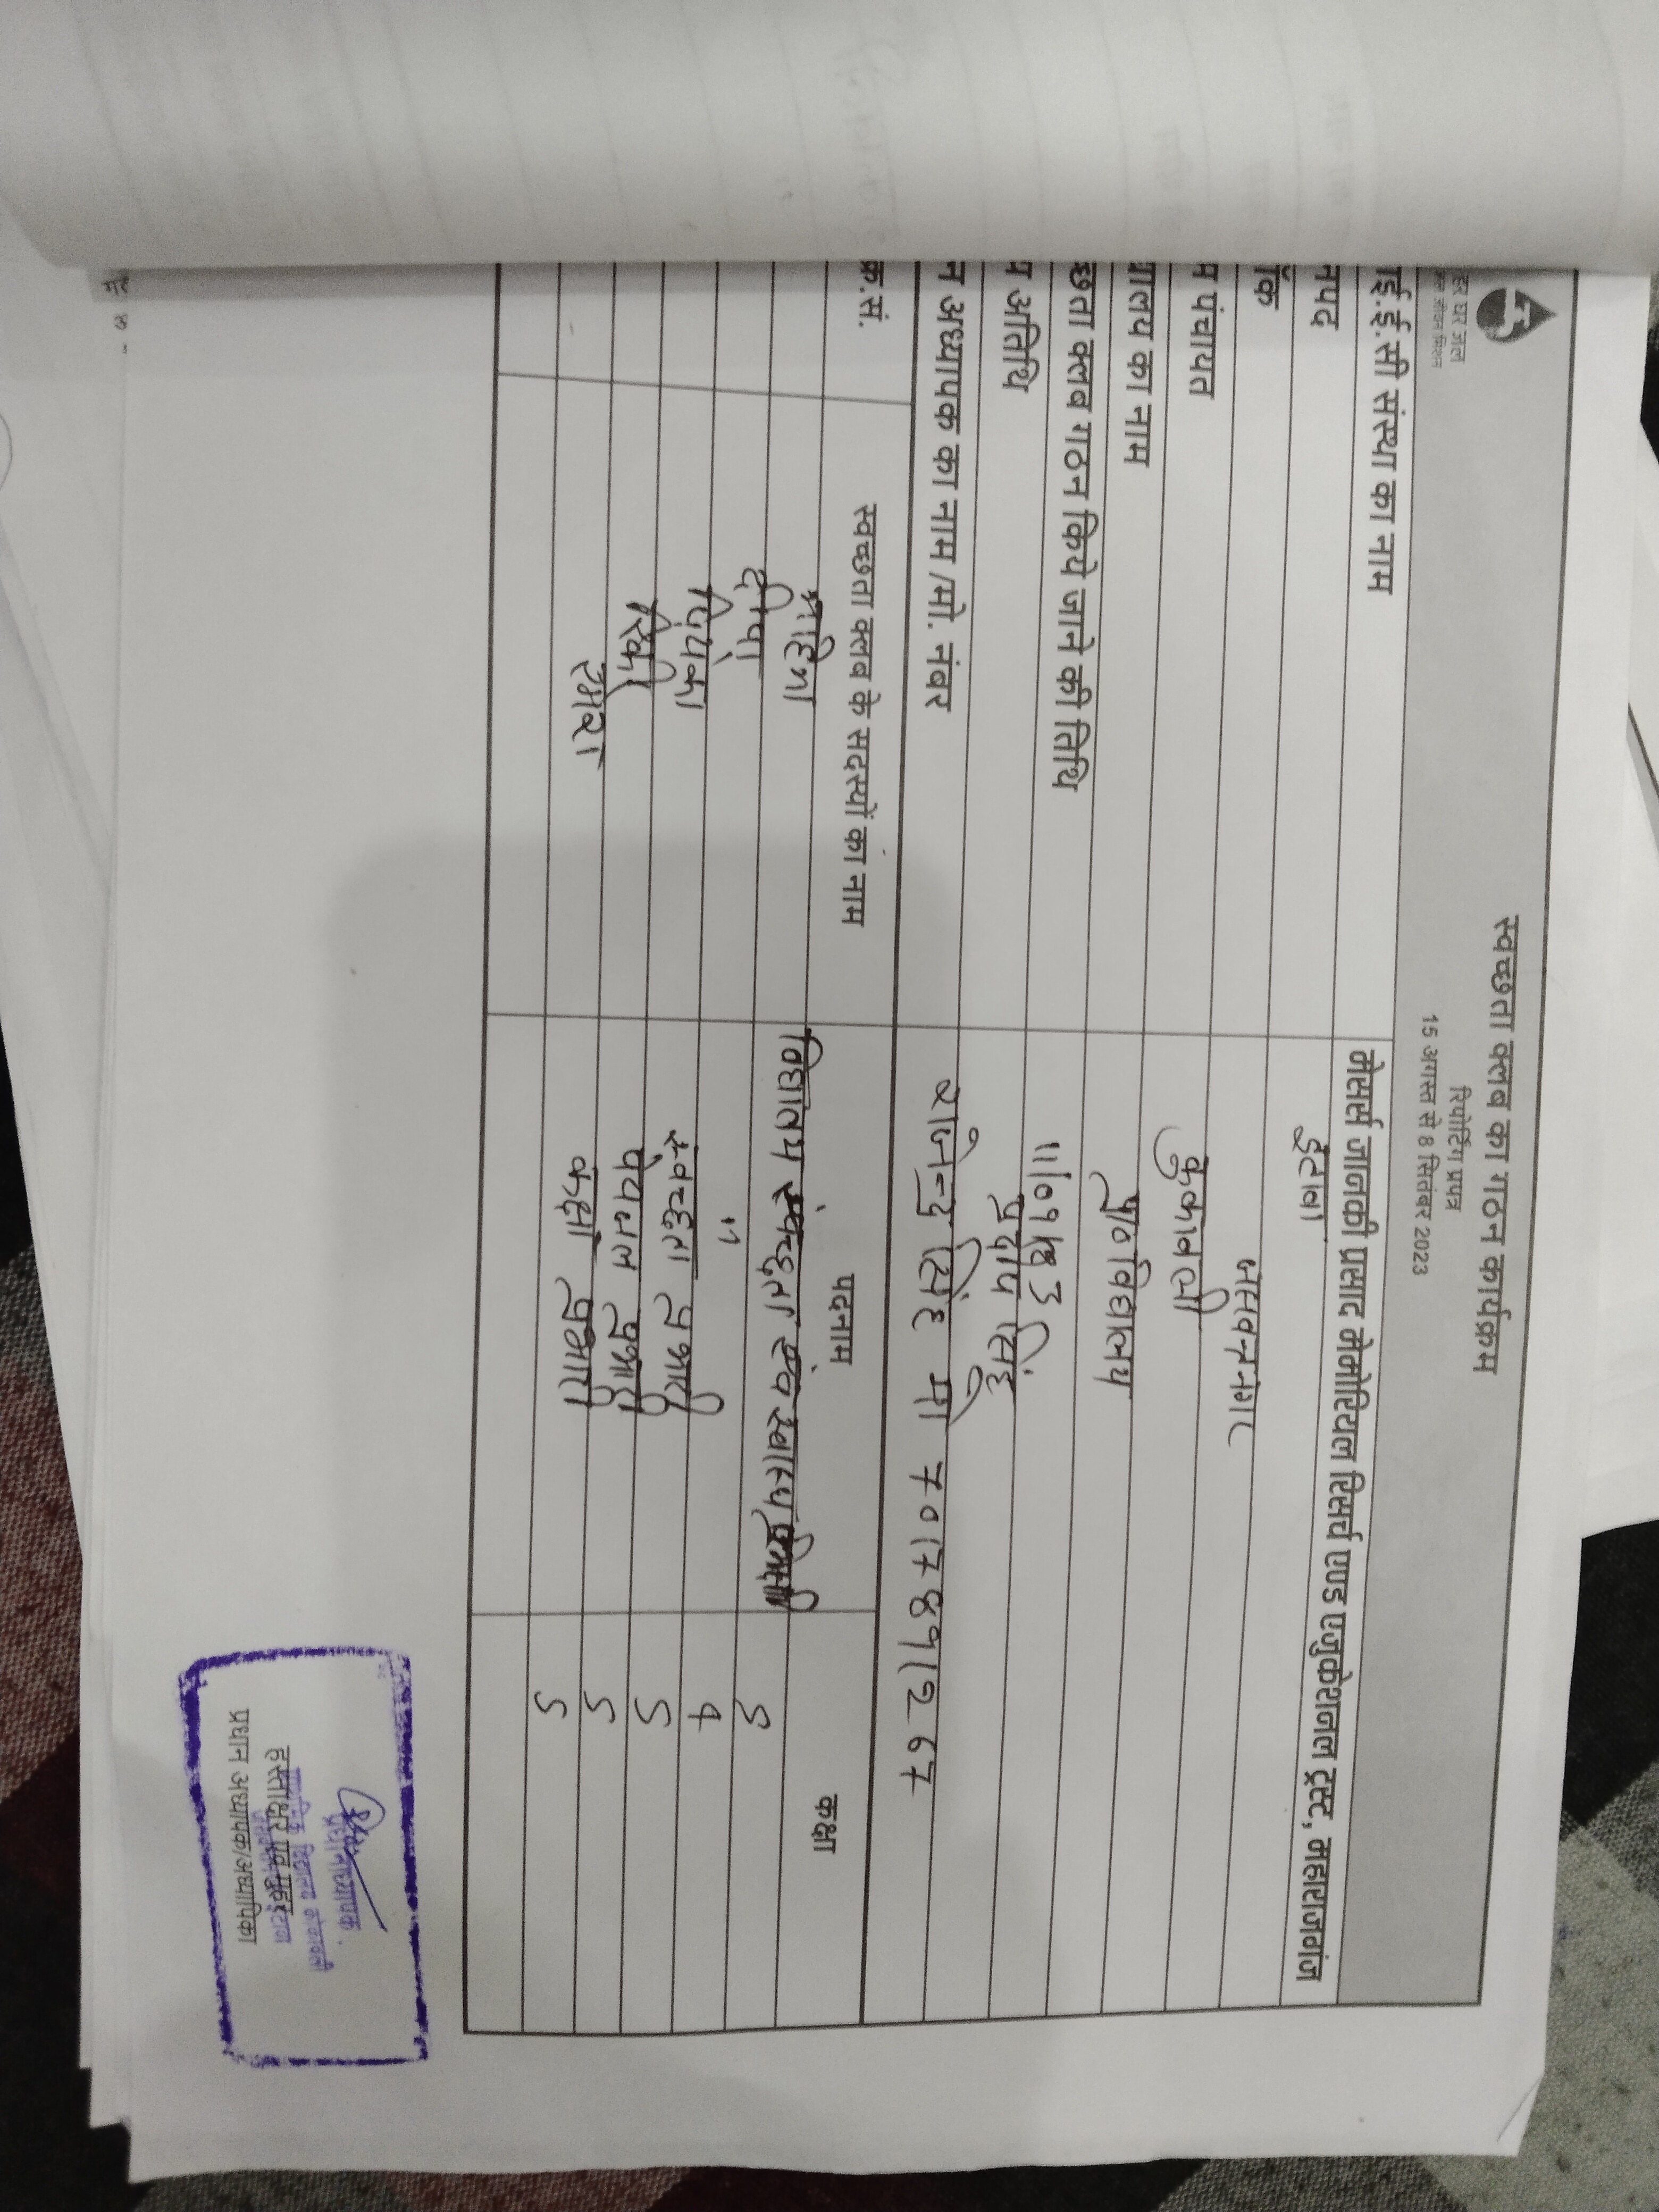 हर घर जल
जल जीवन मिशन
स्वच्छता क्लब का गठन कार्यक्रम
रिपोर्टिंग प्रपत्र
15 अगस्त से 8 सितंबर 2023
ई.ई.सी संस्था का नाम मेसर्स जानकी प्रसाद मेमोरियल रिसर्च एण्ड एजुकेशनल ट्रस्ट, महाराजगंज
नपद इटावा
ॉक जसवन्तनगर
म पंचायत कुकावली
द्यालय का नाम प्रा० विद्यालय
छता क्लब गठन किये जाने की तिथि
य अतिथि प्रदीप सिंह
न अध्यापक का नाम /मो. नंबर राजेन्द्र सिंह मो 7017891267
क्र.सं. स्वच्छता क्लब के सदस्यों का नाम पदनाम कक्षा
मोहिनी विद्यालय स्वच्छता एंव स्वास्थ्य 5
दीपा " 4
प्रियंका स्वच्छता प्रभारी 5
रिंकी पेयजल प्रभारी 5
कक्षा प्रभारी 5
प्रधानाध्यापक
हस्ताक्षर एवं मुहर
प्रधान अध्यापक/अध्यापिका